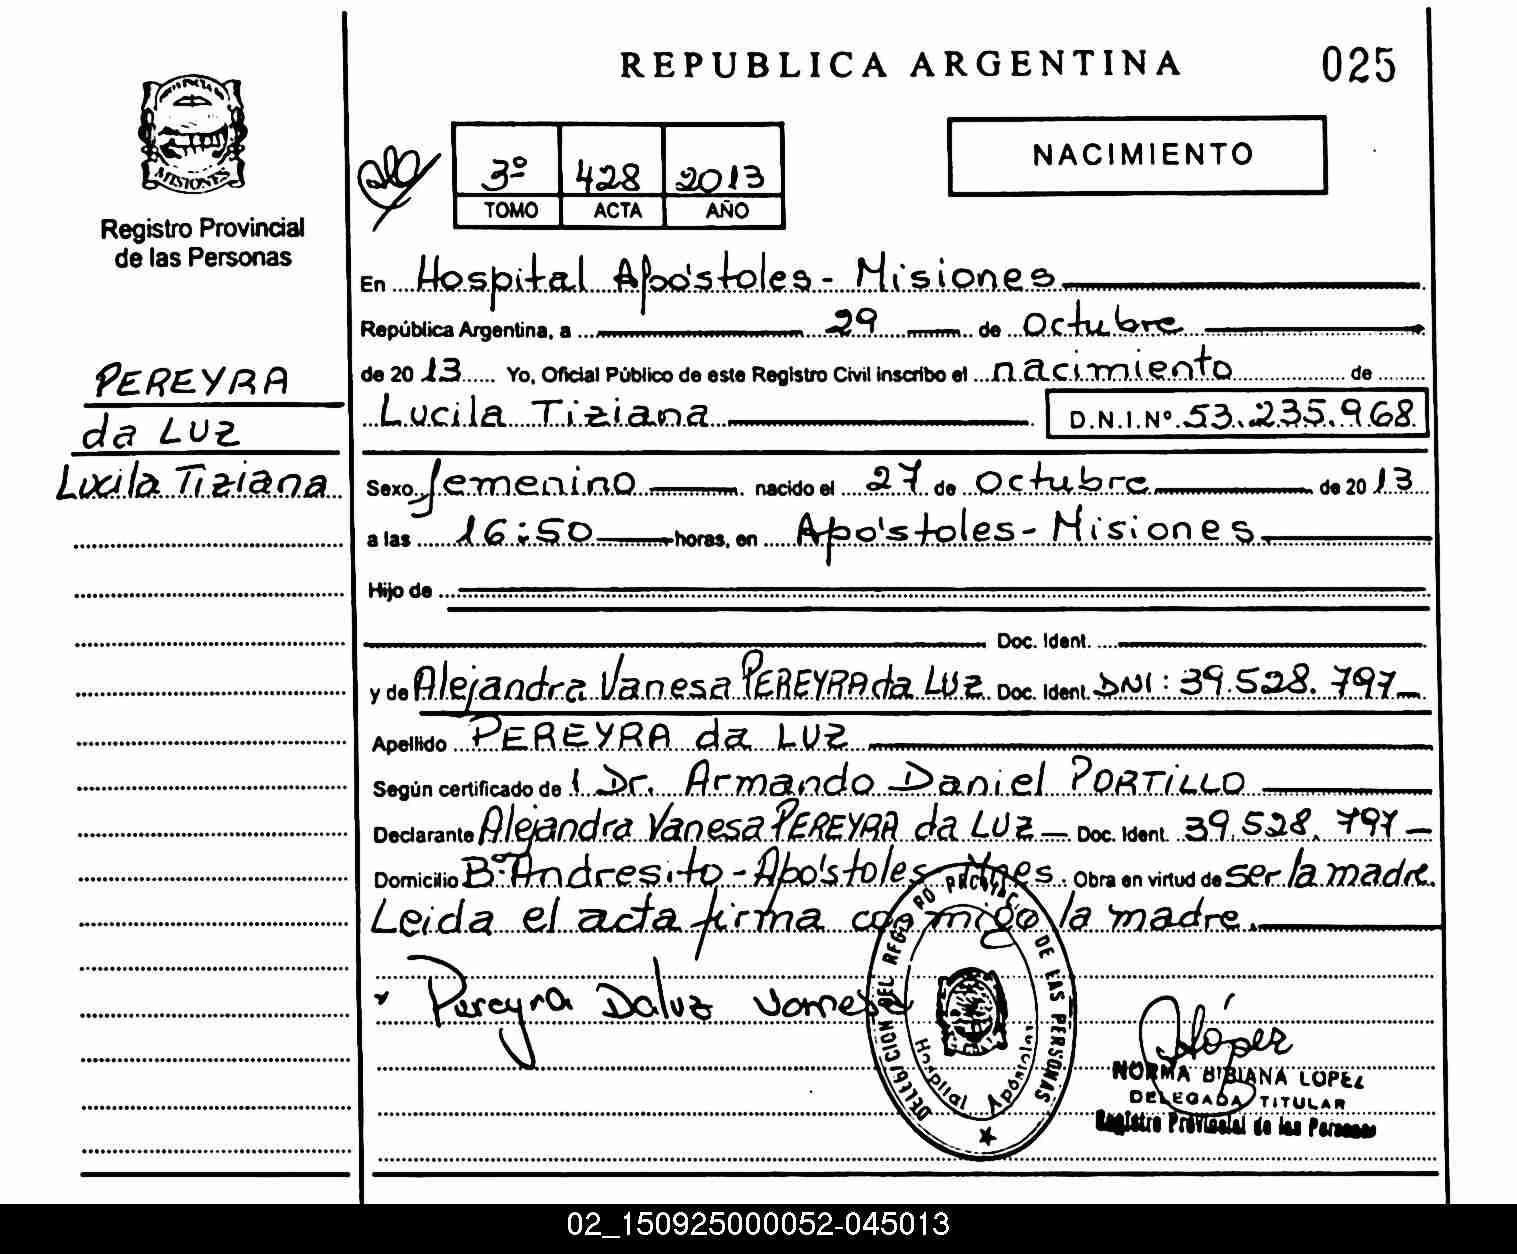 REPUBLICA ARGENTINA
025
MISIONES
Registro Provincial
de las Personas
3º 428 2013
TOMO ACTA AÑO
NACIMIENTO
PEREYRA
da LUZ
Lucila Tiziana
En Hospital Apóstoles - Misiones
República Argentina, a 29 de Octubre
de 2013 Yo, Oficial Público de este Registro Civil inscribo el nacimiento de
Lucila Tiziana D.N.I.Nº 53.235.968
Sexo femenino nacido el 27 de Octubre de 2013
a las 16:50 horas, en Apóstoles - Misiones
Hijo de
Doc. Ident.
y de Alejandra Vanesa PEREYRA da LUZ Doc. Ident. DNI: 39.528.797
Apellido PEREYRA da LUZ
Según certificado de Dr. Armando Daniel PORTILLO
Declarante Alejandra Vanesa PEREYRA da LUZ Doc. Ident. 39.528.797
Domicilio Bº Andresito - Apóstoles Mnes. Obra en virtud de ser la madre.
Leida el acta firma conmigo la madre.
Pereyra Daluz Vanesa
DELEGACION DEL REGISTRO PROVINCIAL DE LAS PERSONAS
Hospital Apóstoles
López
NORMA BIBIANA LOPEZ
DELEGADA TITULAR
Registro Provincial de las Personas
02_150925000052-045013